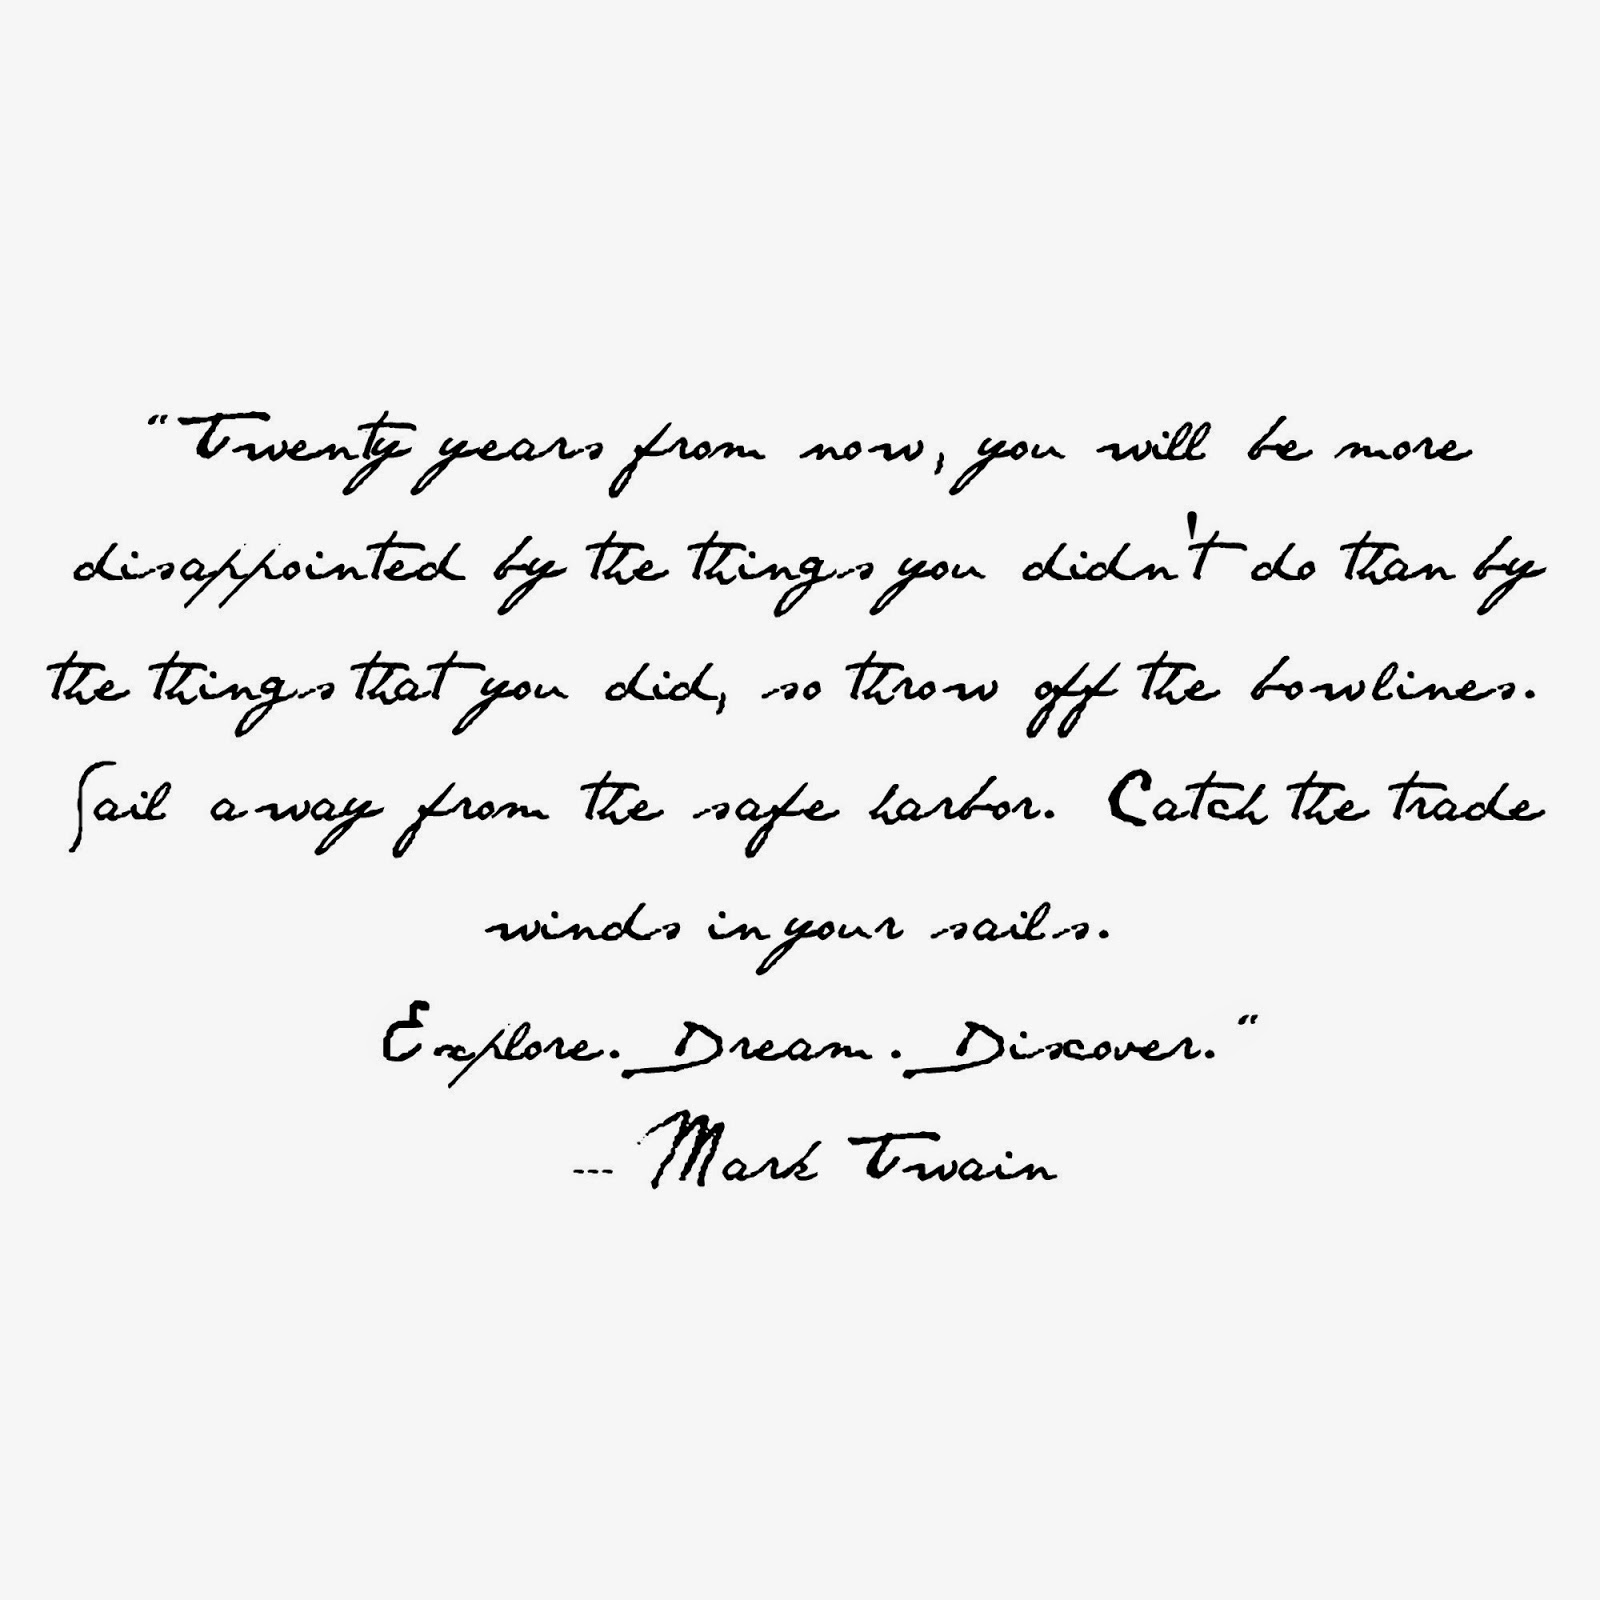 “Twenty years from now, you will be more
disappointed by the things you didn't do than by
the things that you did, so throw off the bowlines.
Sail away from the safe harbor. Catch the trade
winds in your sails.
Explore. Dream. Discover.“
--- Mark Twain